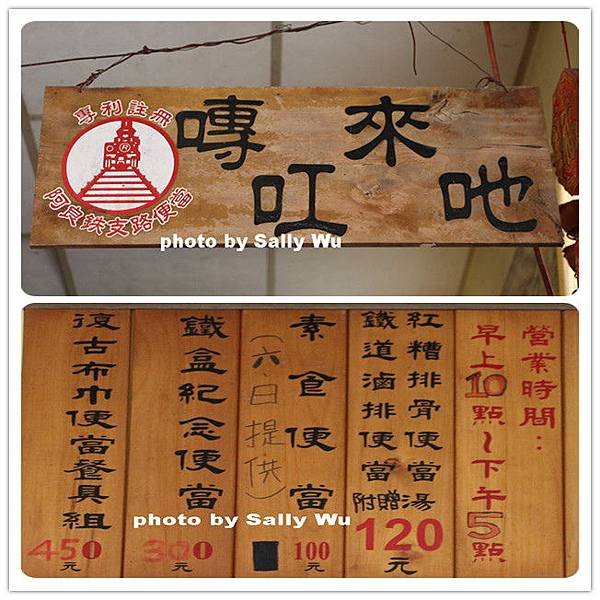 專利註冊
阿良鉄支路便當
嘜叮來吔
photo by Sally Wu
營業時間：
早上10點～下午5點
紅糟排骨便當
鐵道滷排便當
附贈湯
120元
素食便當
（六日提供）
100元
鐵盒紀念便當
300元
復古布巾便當餐具組
450元
photo by Sally Wu